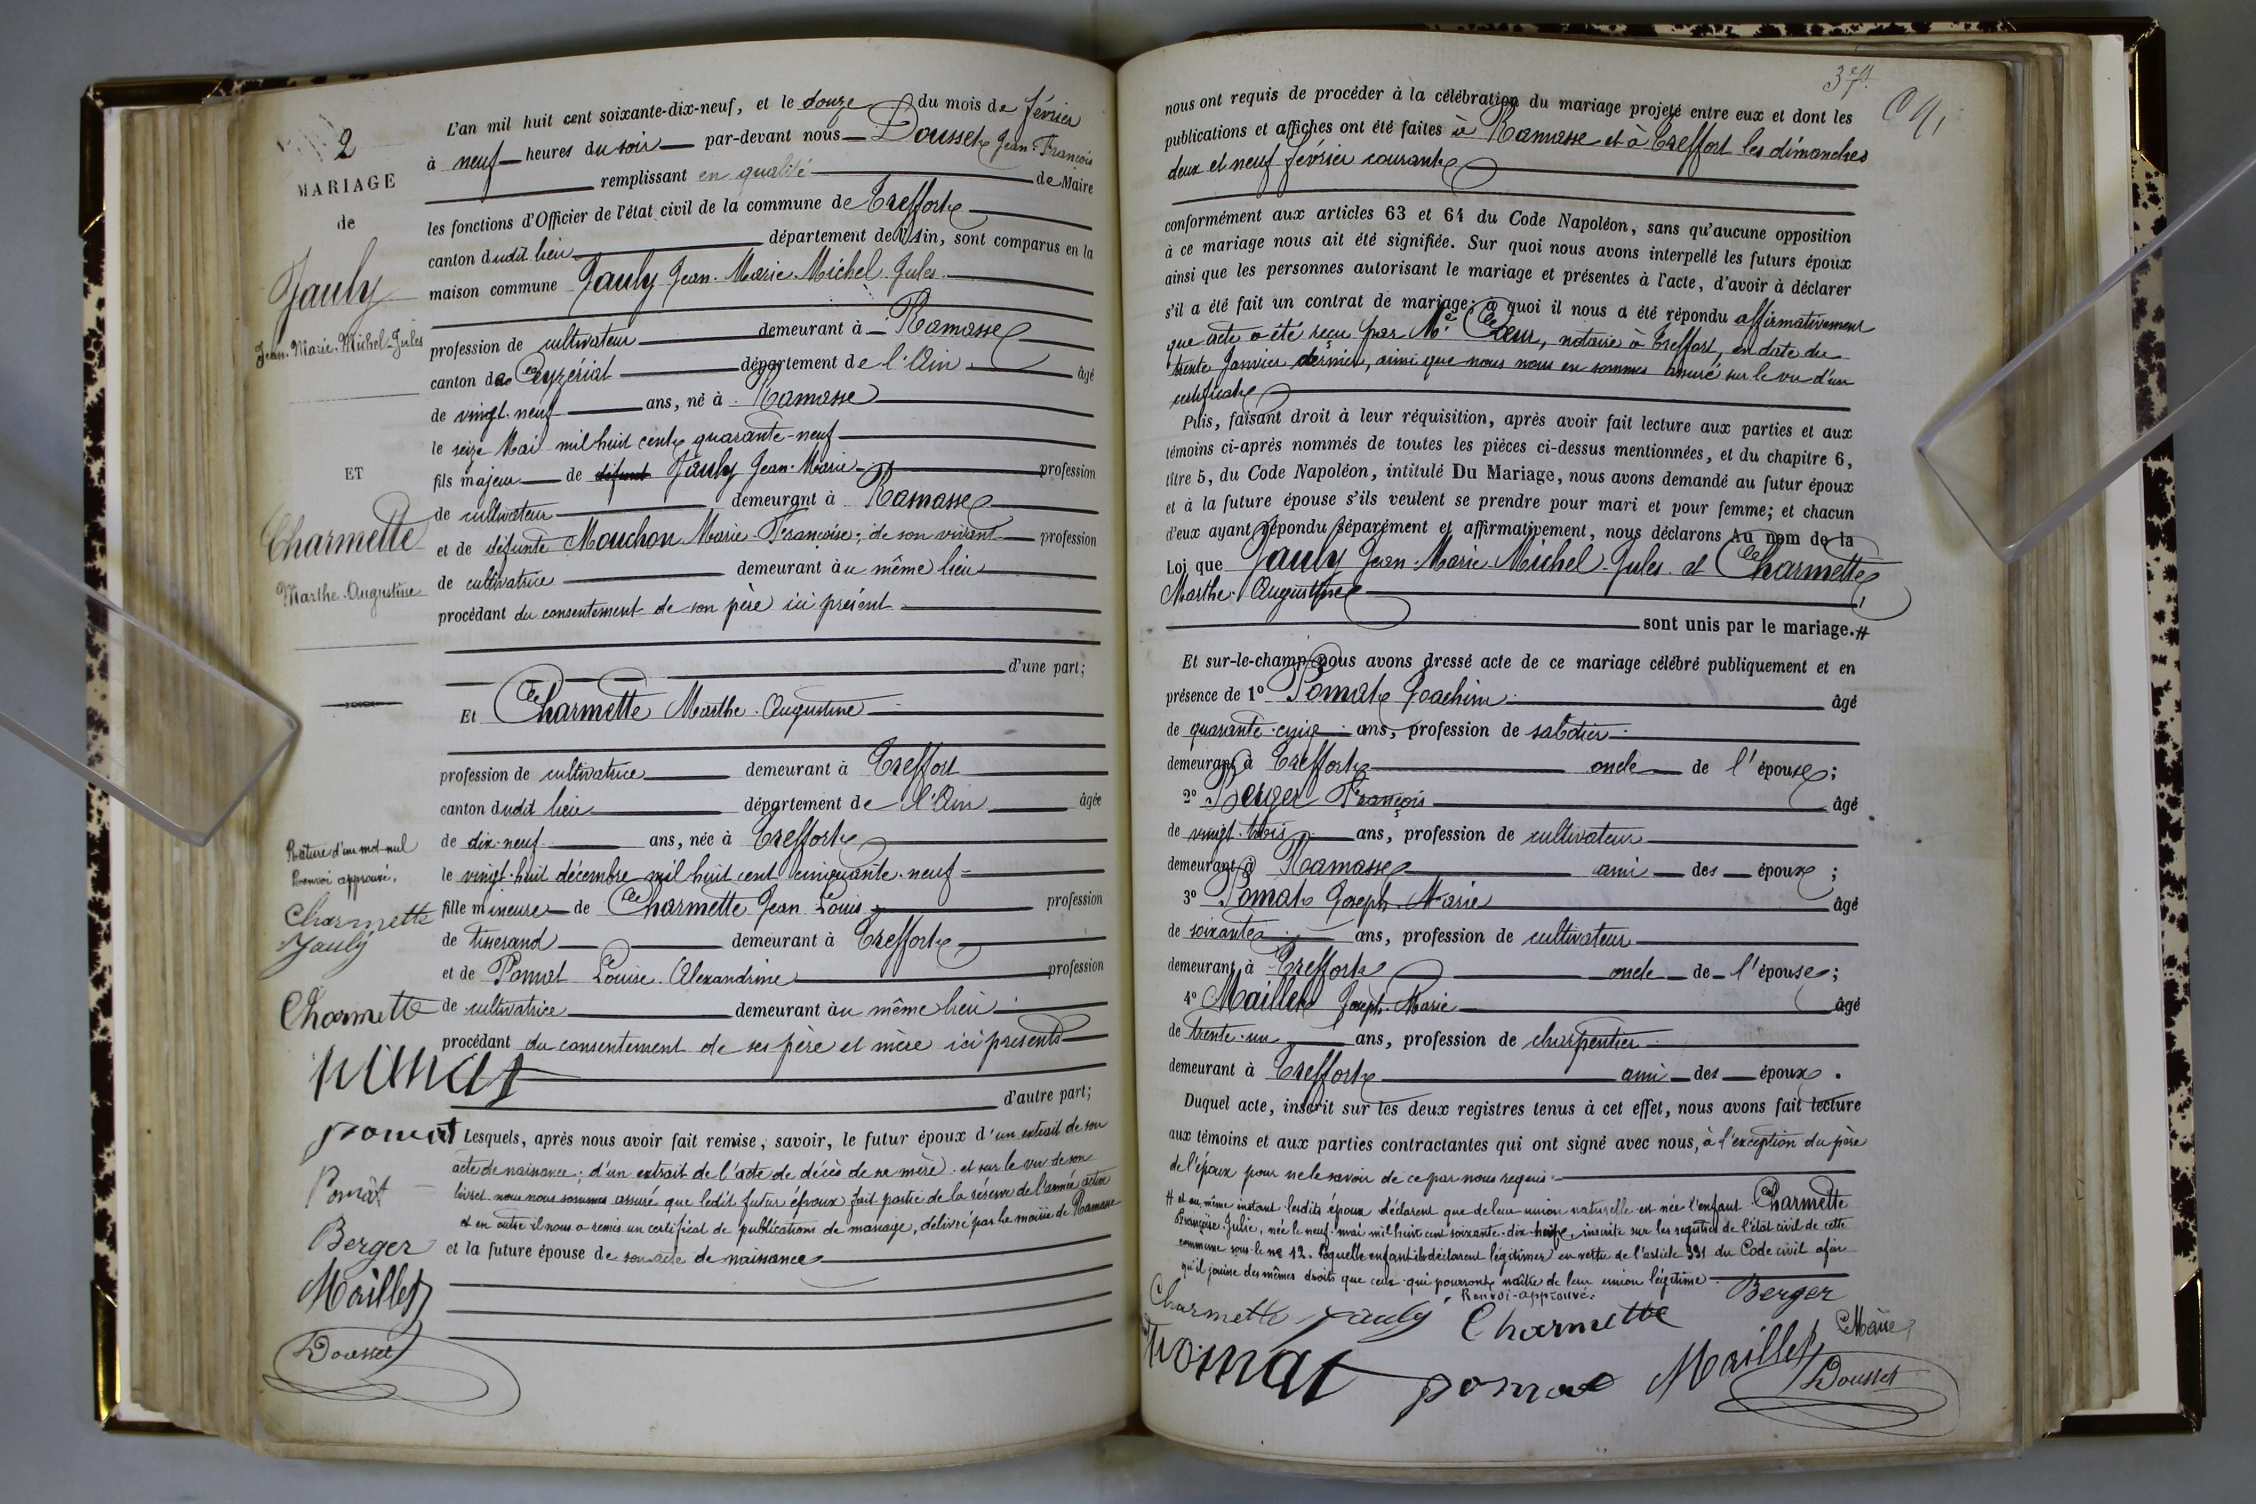 2
MARIAGE
de
Jauly
Jean-Marie-Michel-Jules
ET
Charmette
Marthe-Augustine
Rature d'un mot nul
Renvoi approuvé.
Charmette
Jauly
Charmette
pomat
Pomat
Berger
Maillet
Dousset
L'an mil huit cent soixante-dix-neuf, et le douze du mois de février
à neuf heures du soir par-devant nous Dousset Jean-François
remplissant en qualité de Maire
les fonctions d'Officier de l'état civil de la commune de Treffort
canton dudit lieu département de l'Ain, sont comparus en la
maison commune Jauly Jean-Marie-Michel-Jules
profession de cultivateur demeurant à Ramasse
canton de Ceyzériat département de l'Ain âgé
de vingt-neuf ans, né à Ramasse
le seize Mai mil huit cent quarante-neuf
fils majeur de défunt Jauly Jean-Marie profession
de cultivateur demeurant à Ramasse
et de défunte Mouchon Marie-Françoise; de son vivant profession
de cultivatrice demeurant au même lieu
procédant du consentement de son père ici présent
d'une part;
Et Charmette Marthe-Augustine
profession de cultivatrice demeurant à Treffort
canton dudit lieu département de l'Ain âgée
de dix-neuf ans, née à Treffort
le vingt-huit décembre mil huit cent cinquante-neuf
fille mineure de Charmette Jean Louis profession
de tisserand demeurant à Treffort
et de Pomat Louise Alexandrine profession
de cultivatrice demeurant au même lieu
procédant du consentement de ses père et mère ici présents
d'autre part;
Lesquels, après nous avoir fait remise, savoir, le futur époux d'un extrait de son
acte de naissance; d'un extrait de l'acte de décès de sa mère et sur le vu de son
livret nous nous sommes assuré que ledit futur époux fait partie de la réserve de l'armée active
et en outre il nous a remis un certificat de publications de mariage, délivré par la mairie de Ramasse
et la future épouse de son acte de naissance
37
nous ont requis de procéder à la célébration du mariage projeté entre eux et dont les
publications et affiches ont été faites à Ramasse et à Treffort les dimanches
deux et neuf février courant
conformément aux articles 63 et 64 du Code Napoléon, sans qu'aucune opposition
à ce mariage nous ait été signifiée. Sur quoi nous avons interpellé les futurs époux
ainsi que les personnes autorisant le mariage et présentes à l'acte, d'avoir à déclarer
s'il a été fait un contrat de mariage; à quoi il nous a été répondu affirmativement
que acte a été reçu par Me, notaire à Treffort, en date du
trente Janvier dernier, ainsi que nous nous en sommes assuré sur le vu d'un
certificat
Puis, faisant droit à leur réquisition, après avoir fait lecture aux parties et aux
témoins ci-après nommés de toutes les pièces ci-dessus mentionnées, et du chapitre 6,
titre 5, du Code Napoléon, intitulé Du Mariage, nous avons demandé au futur époux
et à la future épouse s'ils veulent se prendre pour mari et pour femme; et chacun
d'eux ayant répondu séparément et affirmativement, nous déclarons Au nom de la
Loi que Jauly Jean-Marie-Michel-Jules et Charmette
Marthe-Augustine
sont unis par le mariage.#
Et sur-le-champ nous avons dressé acte de ce mariage célébré publiquement et en
présence de 1º Pomat Joachim âgé
de quarante-cinq ans, profession de sabotier
demeurant à Treffort oncle de l'épouse;
2º Berger François âgé
de vingt-trois ans, profession de cultivateur
demeurant à Ramasse ami des époux;
3º Pomat Joseph-Marie âgé
de soixante ans, profession de cultivateur
demeurant à Treffort oncle de l'épouse;
4º Maillet Joseph-Marie âgé
de trente-un ans, profession de charpentier
demeurant à Treffort ami des époux.
Duquel acte, inscrit sur les deux registres tenus à cet effet, nous avons fait lecture
aux témoins et aux parties contractantes qui ont signé avec nous, à l'exception du père
de l'époux pour ne le savoir de ce par nous requis.
# et au même instant lesdits époux déclarent que de leur union naturelle est née l'enfant Charmette
Françoise-Julie, née le neuf mai mil huit cent soixante-dix-huit, inscrite sur les registres de l'état civil de cette
commune sous le no 12. laquelle enfant ils déclarent légitimer en vertu de l'article 331 du Code civil afin
qu'il jouisse des mêmes droits que ceux qui pourront naître de leur union légitime.
Renvoi approuvé.
Berger
Charmette Jauly Charmette
Maire
Pomat pomat Maillet Dousset